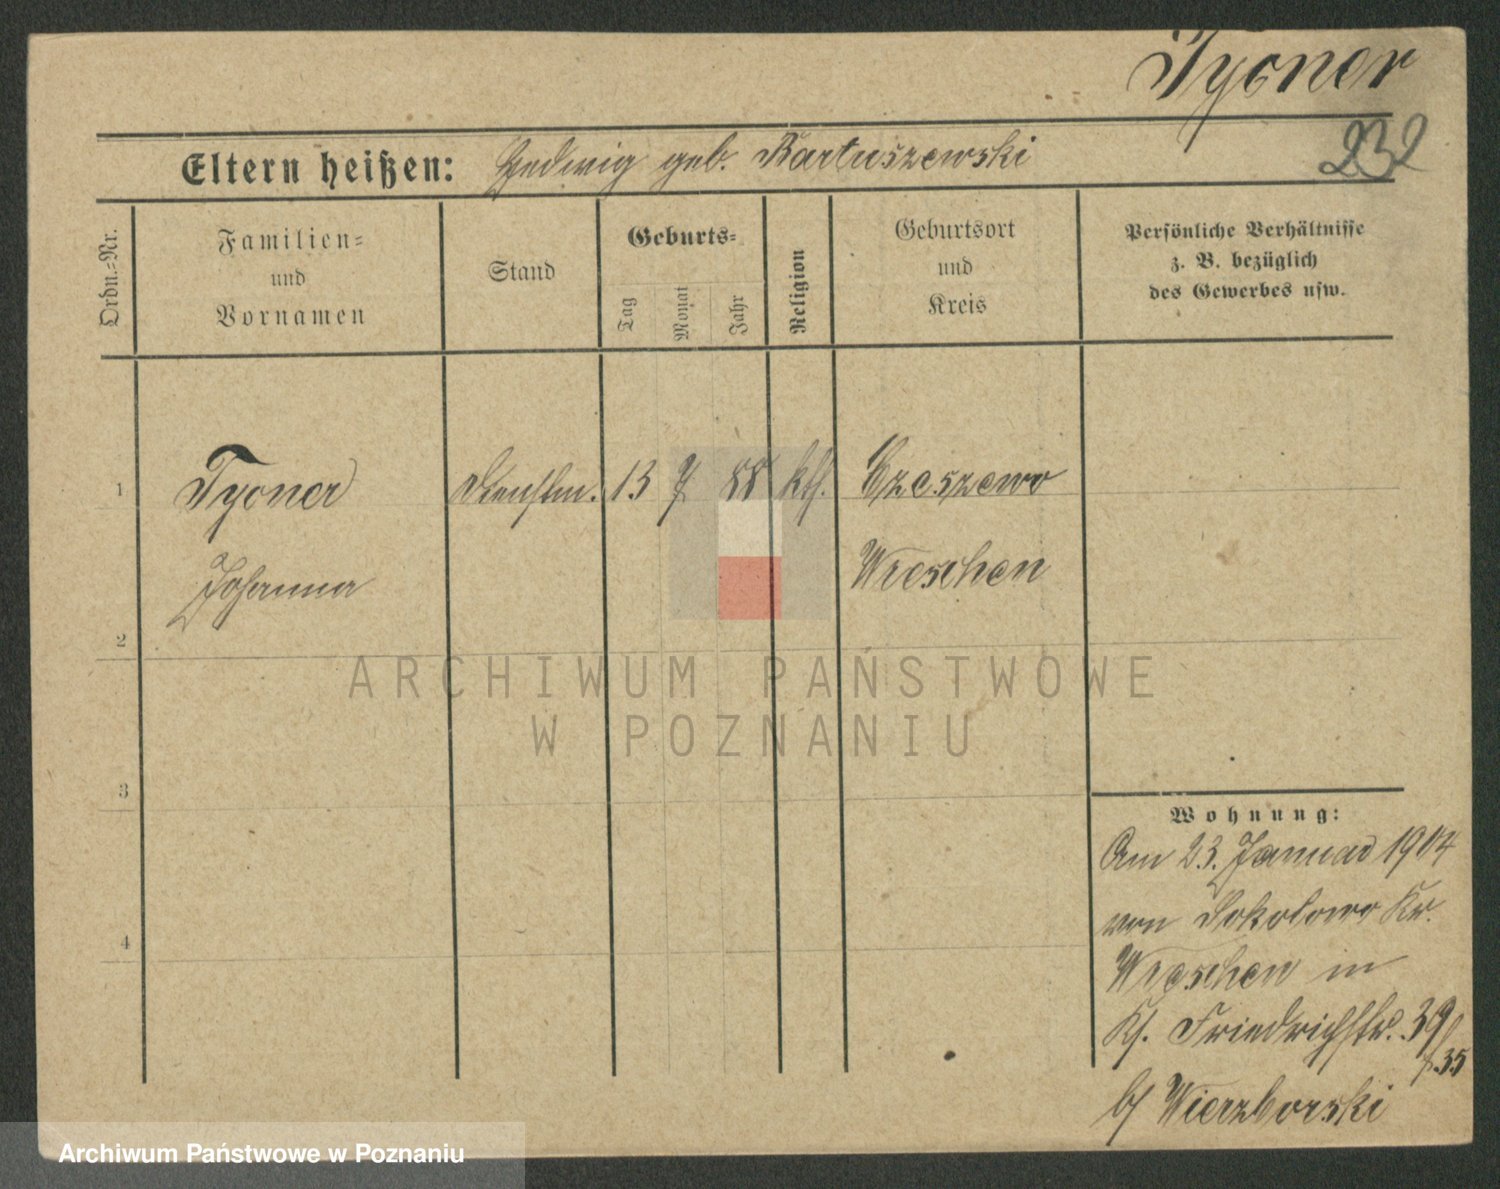 Tyoner
232
Eltern heißen: Hedwig geb. Bartuszewski
Ordn.-Nr.
Familien-
und
Vornamen
Stand
Geburts-
Tag
Monat
Jahr
Religion
Geburtsort
und
Kreis
Persönliche Verhältnisse
z. B. bezüglich
des Gewerbes usw.
1 Tyoner Dienstm. 13 7 88 kth. Czeszewo
Johanna Wreschen
2
3
4
Wohnung:
Am 23. Januar 1904
von Sokolowo Kr.
Wreschen in
Friedrichstr. 39
35
b/ Wierzborski
ARCHIWUM PAŃSTWOWE
W POZNANIU
Archiwum Państwowe w Poznaniu